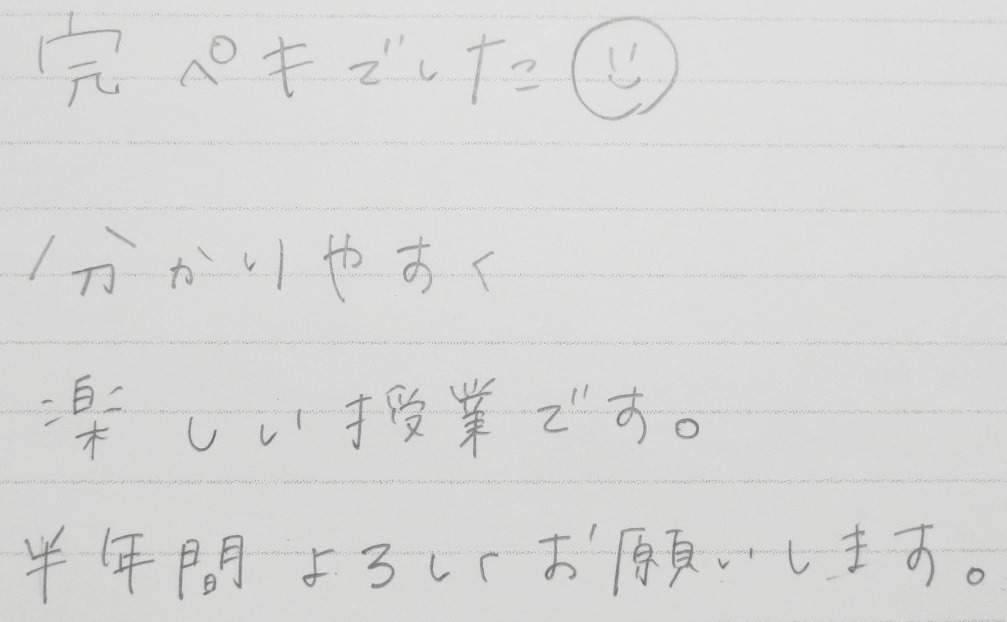 完ペキでした
分かりやすく
楽しい授業です。
半年間よろしくお願いします。